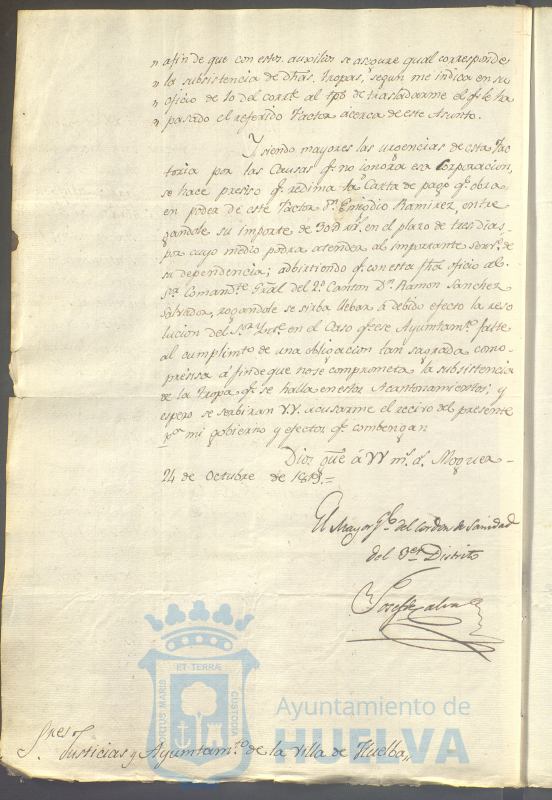 " afin de que con estos auxilios se asegure qual corresponde
" la subsistencia de dhas. tropas, segun me indica en su
" oficio de 10 del corrte al tpo de trasladarme el qe. le ha
" pasado el referido Factor acerca de este Asunto.
Y siendo mayores las urgencias de esta Fac
toria por las Causas qe. no ignora esa Corporacion,
se hace preciso qe. redima la Carta de pago qe. obra
en poder de este Factor Dn. Emigdio Ramirez, entre
gandole su importe de rs. en el plazo de tres dias
por cuyo medio podra atender al importante servo. de
su dependencia; advirtiendo qe. con esta fha oficio al
Sor. Comandte. Gral del 2o. Canton Dn. Ramon Sanchez
Salvador, rogandole se sirba llebar á debido efecto la reso
lucion del Sor. Intte. en el Caso qe. ese Ayuntamto. falte
al cumplimto de una obligacion tan sagrada como
precisa á fin de que no se comprometa la subsistencia
de la tropa qe. se halla en estos Acantonamientos; y
espero se serbiran V.V. acusarme el recivo del presente
pa. mi gobierno y efectos qe. combengan
Dios gue. á VV ms. as. Moguer
24 de Octubre de 1819.=
El Mayor Gl. del Cordon de Sanidad
del 3er Distrito
Josef
ET TERRÆ
PORTUS MARIS
CUSTODIA
Ayuntamiento de
HUELVA
Sres. Justicias y Ayuntamto. de la Villa de Huelba,,